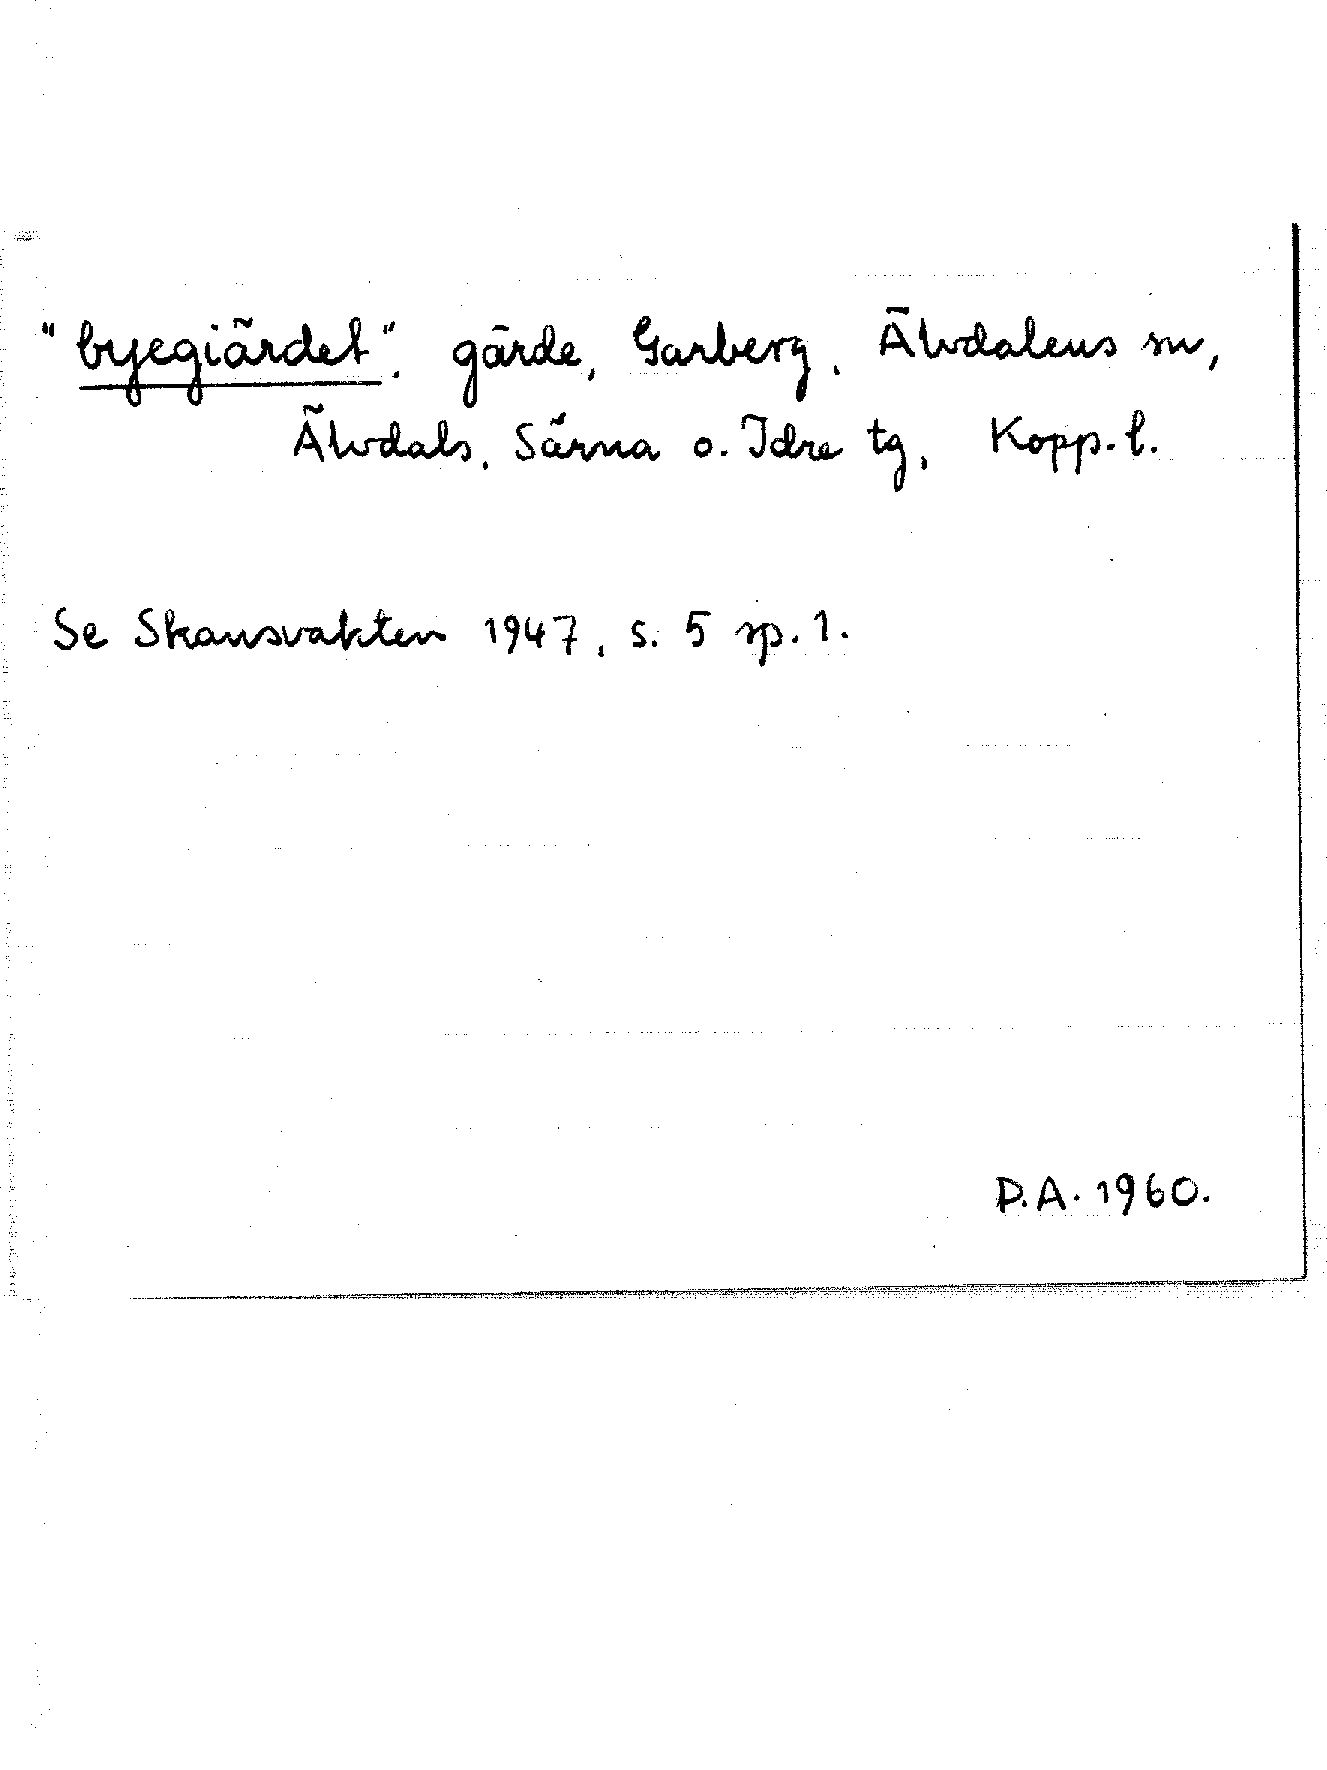 "byegiärdet", gärde, Garberg, Älvdalens sn,
Älvdals, Särna o. Idre tg, Kopp. l.
Se Skansvakten 1947, s. 5 sp. 1.
D.A. 1960.